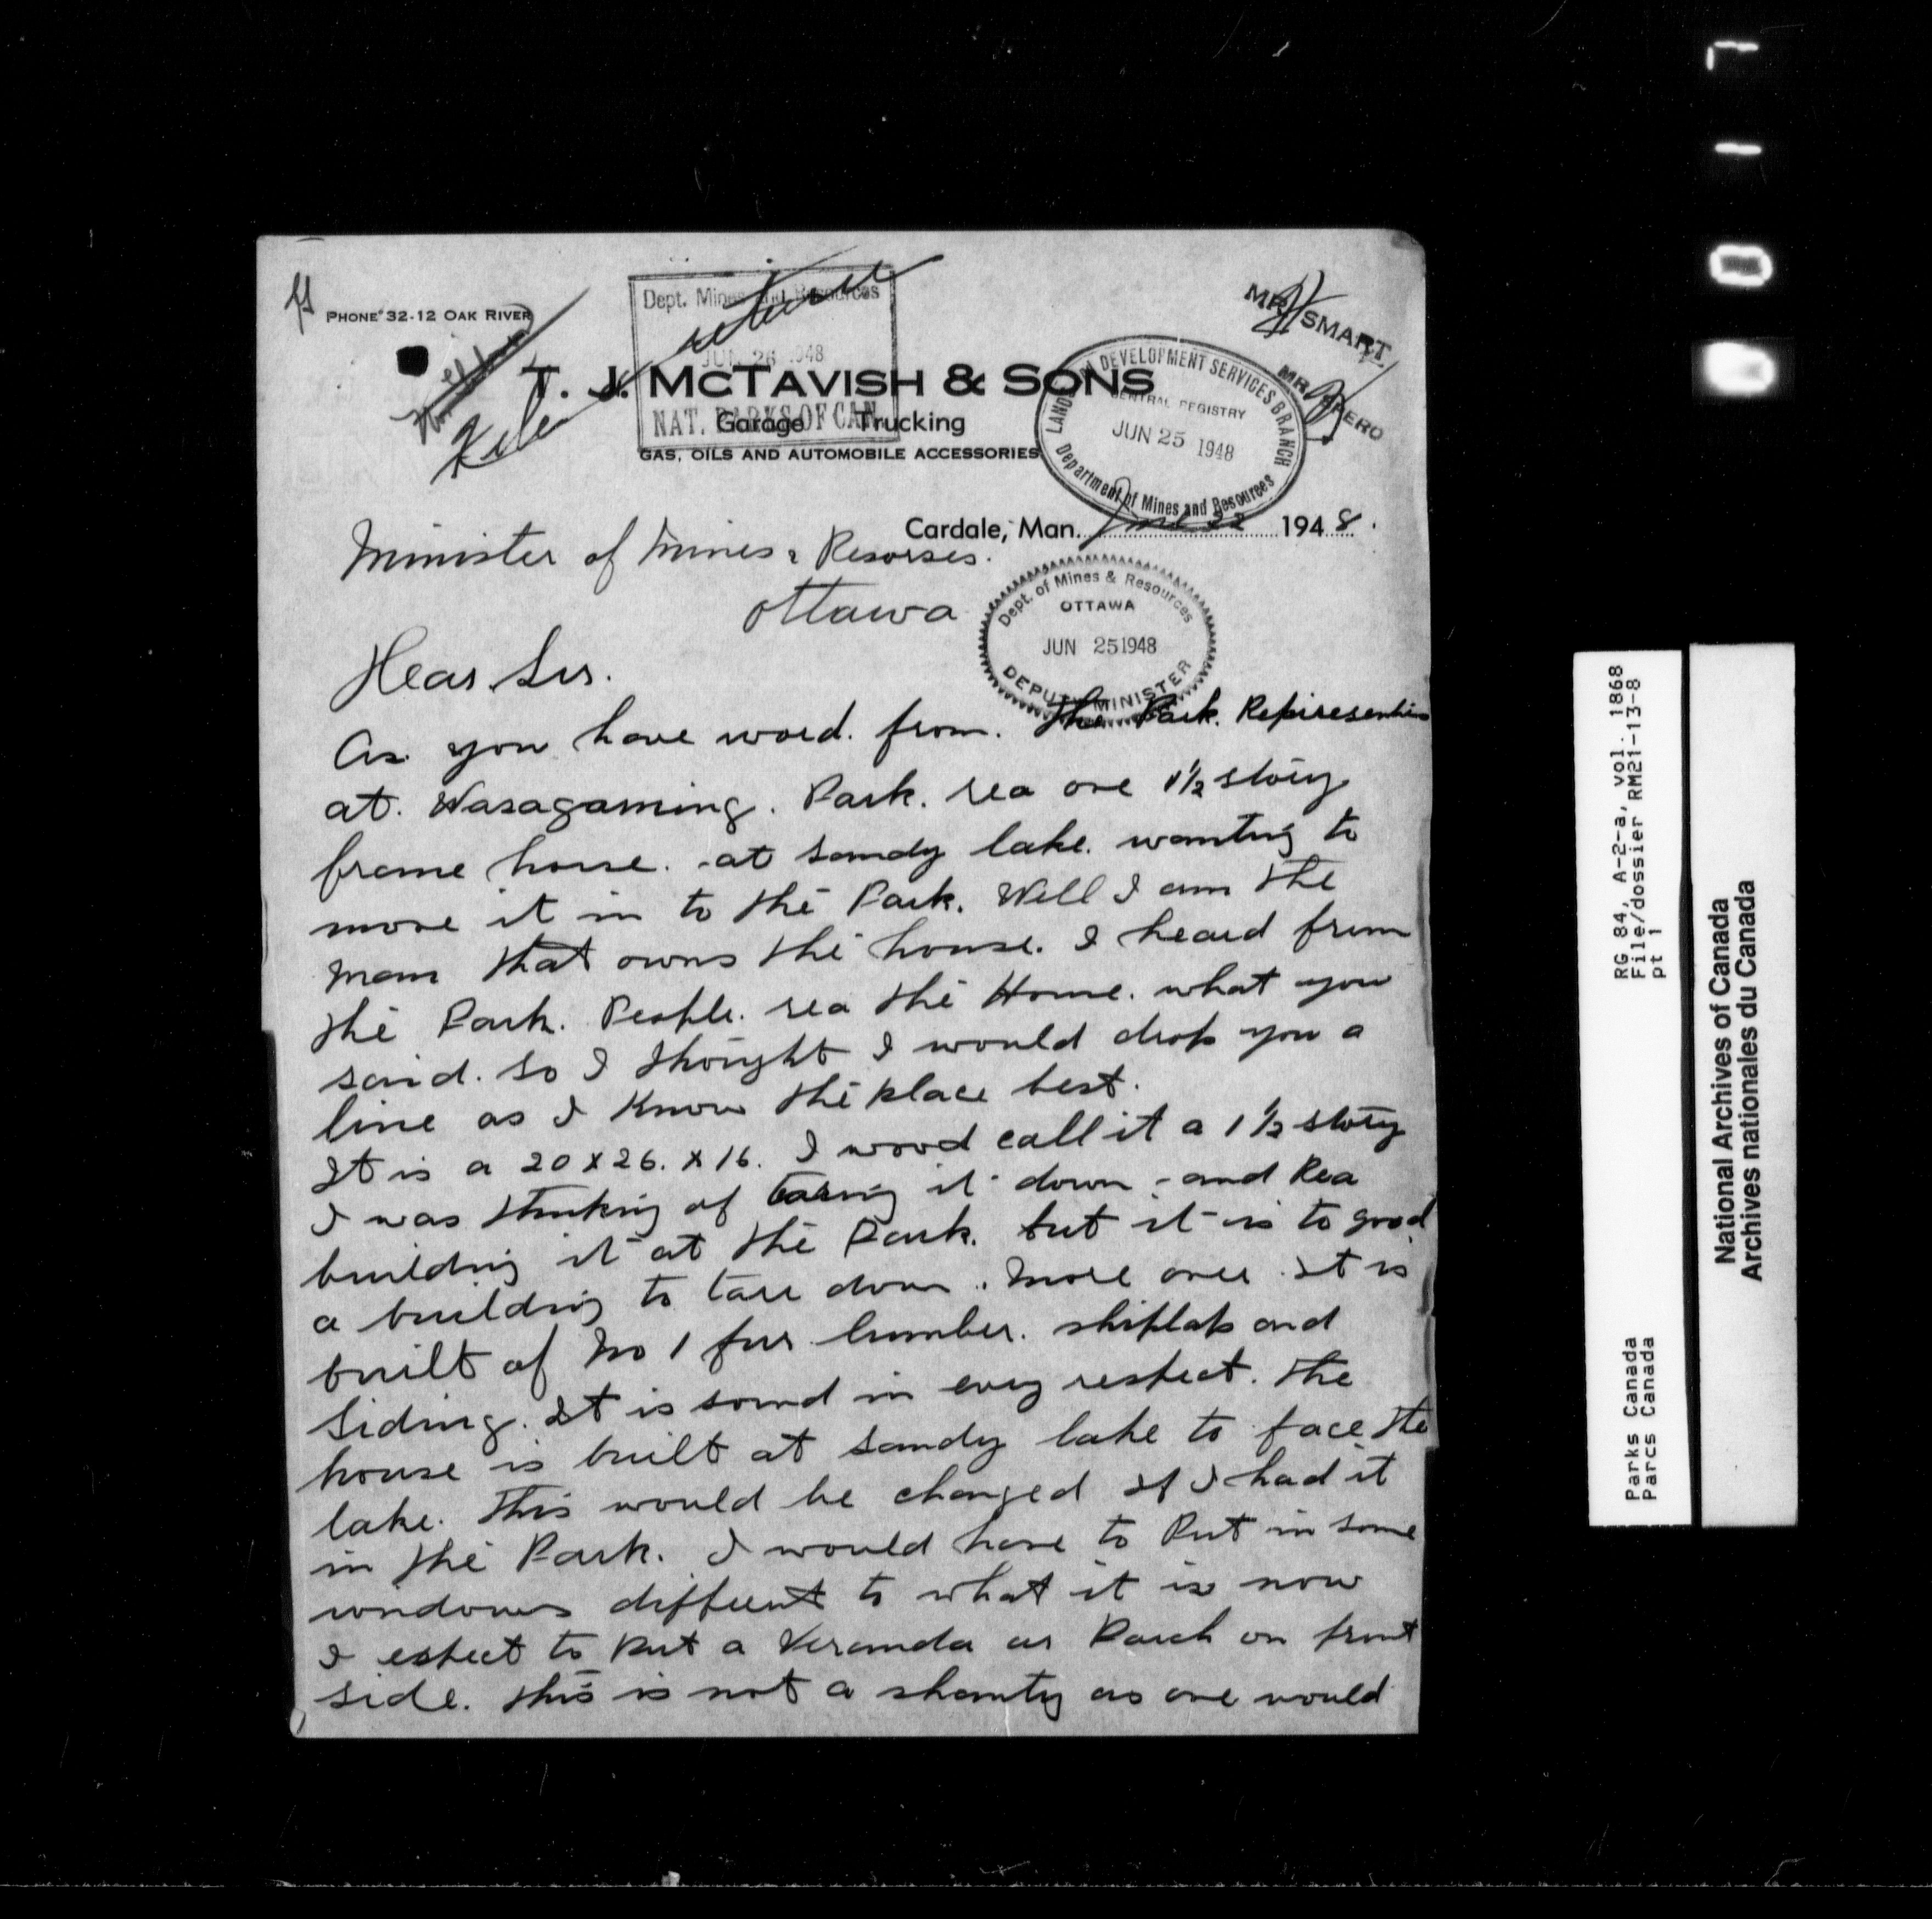 PHONE 32-12 OAK RIVER
Dept. Mines and Resources
JUN 26 1948
NAT. PARKS OF CAN.
MR. SMART
MR. SPERO
T. J. MCTAVISH & SONS
Garage Trucking
GAS, OILS AND AUTOMOBILE ACCESSORIES
LANDS AND DEVELOPMENT SERVICES BRANCH
CENTRAL REGISTRY
JUN 25 1948
Department of Mines and Resources
Cardale, Man. June 22 1948.
Minister of Mines & Resorses.
Ottawa
Dept. of Mines & Resources
OTTAWA
JUN 25 1948
DEPUTY MINISTER
Dear Sir.
As you have word. from. the Park. Representive
at. Wasagaming. Park. rea one 1½ story
frame house. at Sandy lake. wanting to
move it in to the Park. Well I am the
man that owns the house. I heard from
the Park. People. rea the Home. what you
said. So I thought I would drop you a
line as I know the place best.
It is a 20 x 26. x 16. I wood call it a 1½ story
I was thinking of taring it down - and Rea
building it at the Park. but it is to good
a building to tare down. More over. It is
built of No 1 fur lumber. shiplap and
Siding. It is sound in every respect. The
house is built at Sandy lake to face the
lake. This would be changed if I had it
in the Park. I would have to Put in some
windows diffrent to what it is now
I expect to Put a Veranda or Porch on front
side. This is not a shanty as one would
RG 84, A-2-a, vol. 1868
File/dossier RM21-13-8
pt 1
Parks Canada
Parcs Canada
National Archives of Canada
Archives nationales du Canada